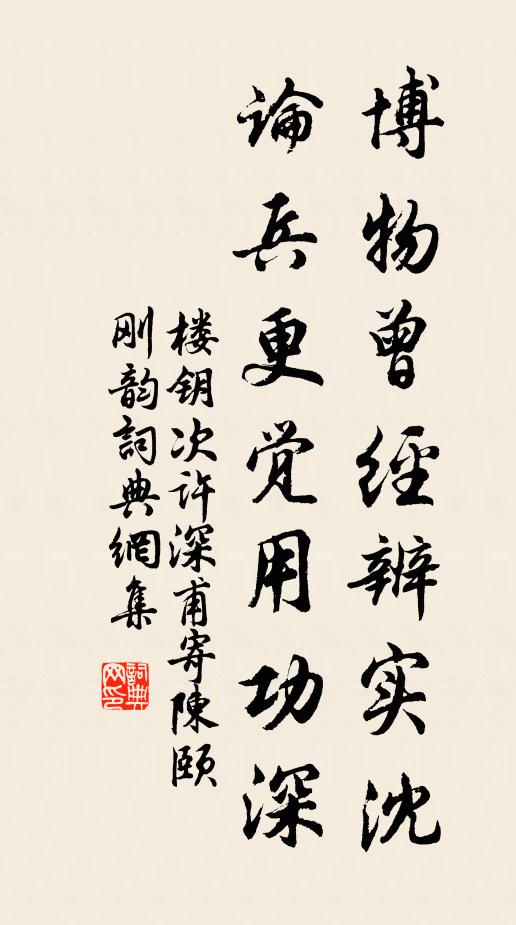 博物曾經辨实沈
論兵更觉用功深
楼钥次许深甫寄陳颐
刚韵詞典網集
詞典
网印